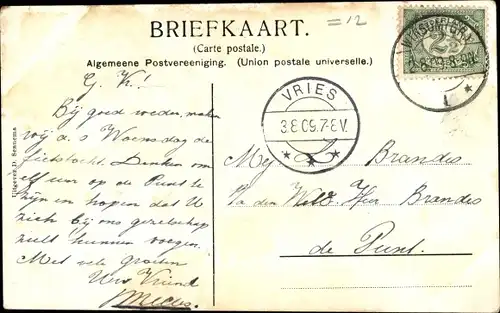 = 12
BRIEFKAART.
(Carte postale.)
Algemeene Postvereeniging. (Union postale universelle.)
G. K!
Bij goed weder, maken
wij a.s. Woensdag de
fietstocht. Denken om
11 uur op de Punt te
zijn en hopen dat U
zich bij ons gezelschap
zult kunnen voegen.
Met vele groeten
Uw Vriend
Uitgever D. Sennema
2½
VRIES
3.8.09.7-8V.
Mej. Brandes
p/a den Weled. Heer Brandes
de Punt.